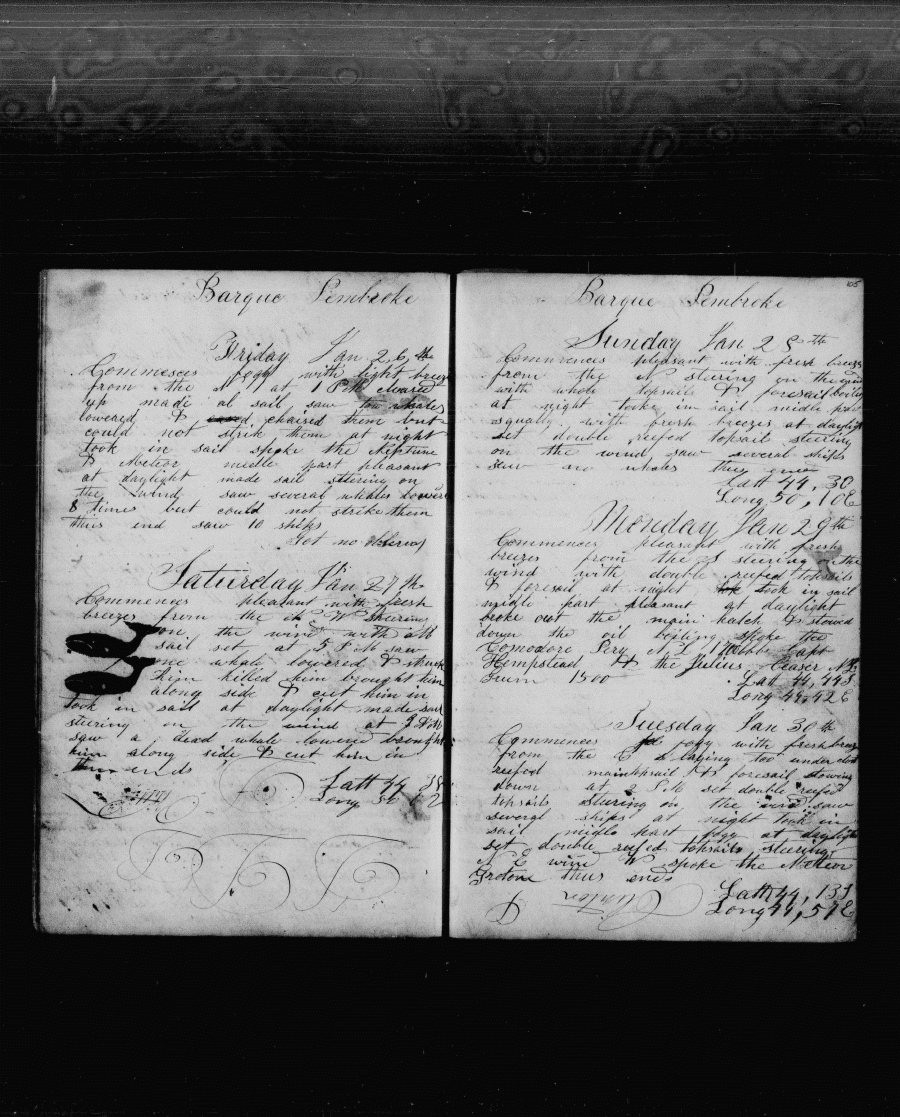 Barque Pembroke
Friday Jan 26th
Commences fogy with light breezes
from the N at 1 P M cleared
up made al sail saw two whales
lowered & chaised them but
could not strik them at night
took in sail spoke the Neptune
& Meteor midle part pleasant
at daylight made sail stering on
the wind saw several whales lowered
8 times but could not strike them
thus end saw 10 ships
Got no
Saturday Jan 27th
Commences pleasant with fresh
breezes from the W stering
on the wind with all
sail set at 5 P M saw
one whale lowered & struck
him killed him brought him
along side & cut him in
took in sail at daylight made sail
stering on the wind at
saw a dead whale lowered brought
him along side & cut him in
thus ends
Latt 44
Long 50
Barque Pembroke
105
Sunday Jan 28th
Commences pleasant with fresh breezes
from the N stering on the wind
with whole topsails & foresail boiling
at night tooke in sail midle part
squally with fresh breezes at daylight
set double reefed topsail stering
on the wind saw several ships
saw no whales thus
Latt 44, 30
Long 50, 10E
Monday Jan 29th
Commences pleasant with fresh
breezes from the S stering on the
wind with double reefed topsails
& foresail at night took in sail
midle part pleasant at daylight
broke out the main hatch & stowed
down the oil boiling spoke the
Comodore Pery N L 1700bbls Capt
Hempstead & the Julius Ceaser N L
1500
Latt 44, 44S
Long 49, 42E
Tuesday Jan 30th
Commences fogy with fresh breezes
from the E laying too under close
reefed maintopsail & foresail stowing
down at 2 P M set double reefed
topsails stering on the wind saw
several ships at night took in
sail midle part fogy at daylight
set double reefed topsails stering
N E wind W spoke the Meteor
Groton thus ends
Latt 44, 13S
Long 49, 51E